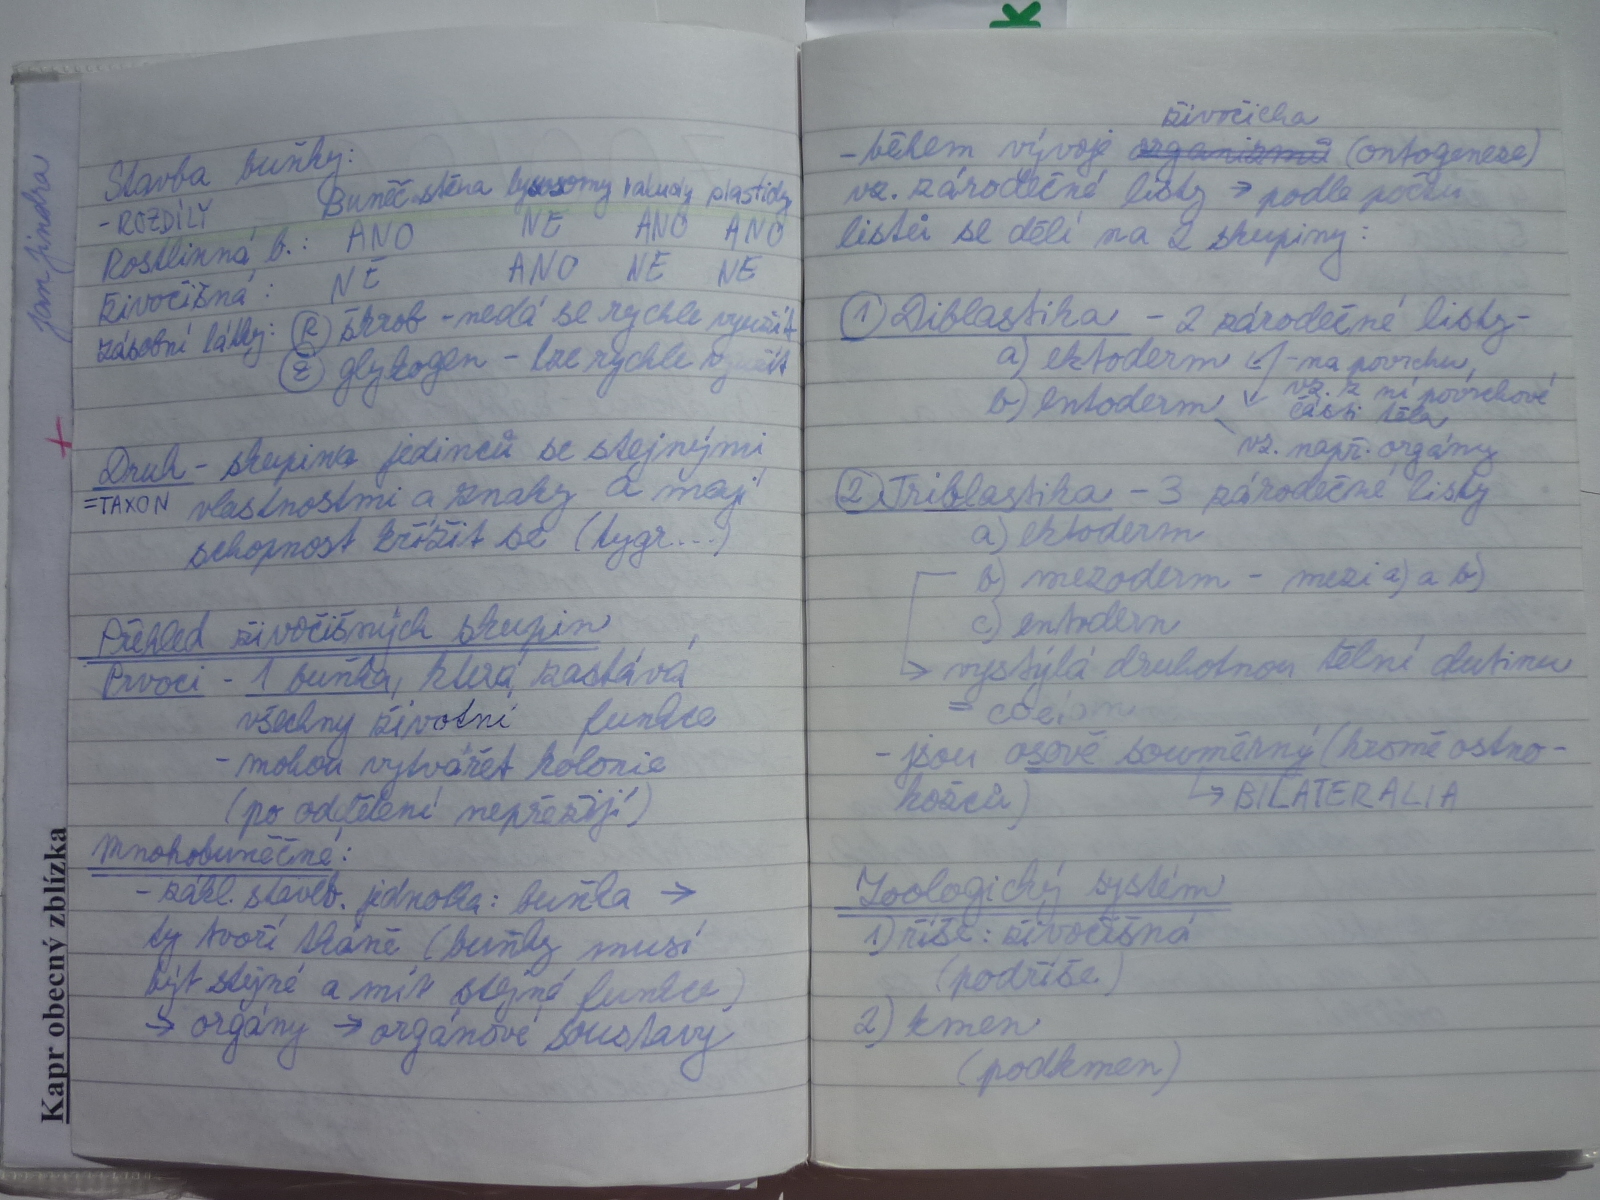 Stavba buňky:
-ROZDÍLY Buněč. stěna lysosomy vakuoly plastidy
Rostlinná b.: ANO NE ANO ANO
živočišná: NE ANO NE NE
zásobní látky: Ⓡ škrob - nedá se rychle využít
Ⓩ glykogen - lze rychle využít
Druh - skupina jedinců se stejnými
=TAXON vlastnostmi a znaky a mají
schopnost křížit se (tygr...)
Přehled živočišných skupin
Prvoci - 1 buňka, která zastává
všechny životní funkce
- mohou vytvářet kolonie
(po oddělení nepřežijí)
Mnohobuněčné:
- zákl. staveb. jednotka: buňka →
ty tvoří tkáně (buňky musí
být stejné a mít stejné funkce)
→ orgány → orgánové soustavy
Jan Jindra
+
Kapr obecný zblízka
K
živočicha
- během vývoje organizmů (ontogeneze)
vz. zárodečné listy → podle počtu
listů se dělí na 2 skupiny:
① Diblastika - 2 zárodečné listy-
a) ektoderm - na povrchu,
vz. z ní povrchové
b) entoderm části těla
vz. např. orgány
② Triblastika - 3 zárodečné listy
a) ektoderm
b) mezoderm - mezi a) a b)
c) entoderm
→ vystýlá druhotnou tělní dutinu
=
- jsou osově souměrný (kromě ostno-
kožců) ↳ BILATERALIA
Zoologický systém
1) říše: živočišná
(podříše)
2) kmen
(podkmen)